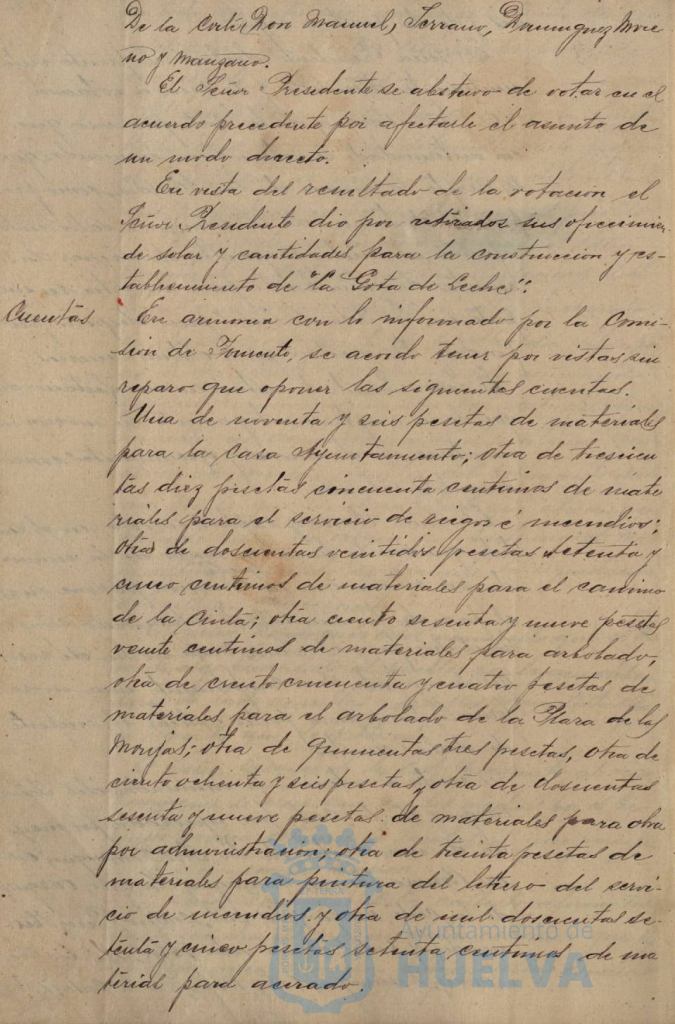 De la Corte (Don Manuel), Serrano, Dominguez More
no y Manzano.
El Señor Presidente se abstuvo de votar en el
acuerdo precedente por afectarle el asunto de
un modo directo.
En vista del resultado de la votacion el
Señor Presidente dio por retirados sus ofrecimien
de solar y cantidades para la construccion y es-
tablecimiento de "La Gota de Leche".
Cuentas
En armonia con lo informado por la Comi-
sion de Fomento, se acordo tener por vistas sin
reparo que oponer las siguientes cuentas.
Una de noventa y seis pesetas de materiales
para la Casa Ayuntamiento; otra de trescien
tas diez pesetas cincuenta centimos de mate
riales para el servicio de riegos é incendios;
otra de doscientas veintidos pesetas setenta y
cinco centimos de materiales para el camino
de la Cinta; otra ciento sesenta y nueve pesetas
veinte centimos de materiales para arbolado;
otra de ciento cincuenta y cuatro pesetas de
materiales para el arbolado de la Plaza de las
Monjas; otra de quinientas tres pesetas, otra de
ciento ochenta y seis pesetas y otra de doscientas
sesenta y nueve pesetas de materiales para obra
por administracion; otra de treinta pesetas de
materiales para pintura del letrero del servi-
cio de incendios y otra de mil doscientas se-
tenta y cinco pesetas setenta centimos de ma
terial para acerado.
Ayuntamiento de
HUELVA